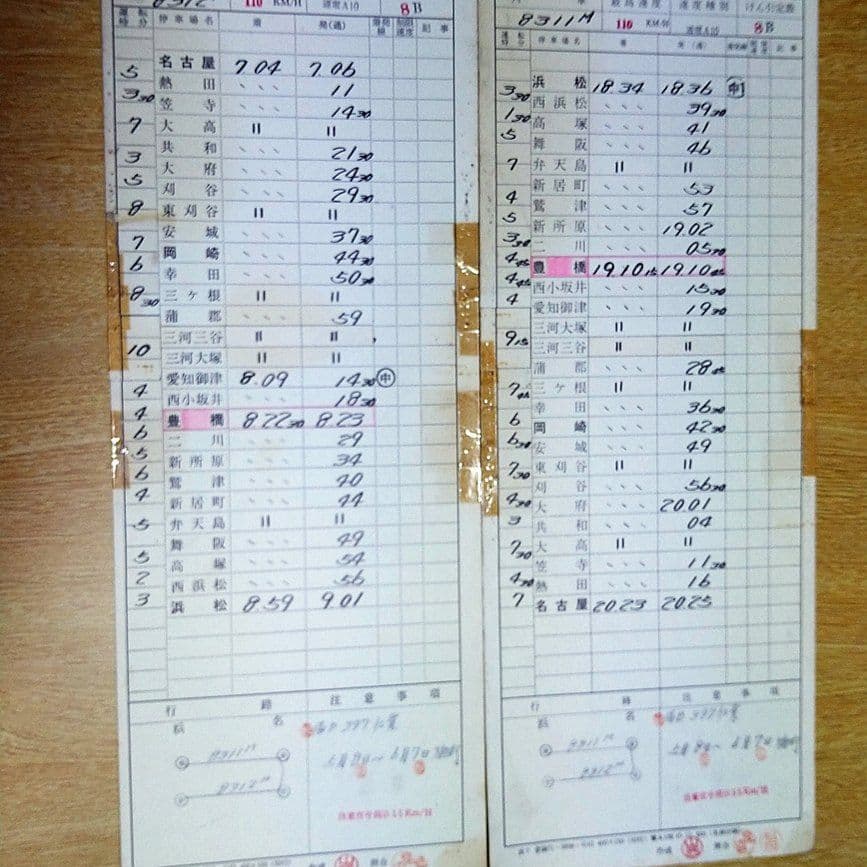 8312M 110 KM/H 速度A10 8B
運転時分 停車場名 着 発(通) 着発線 制限速度 記事
名古屋 7.04 7.06
5 熱田 、、、 11
3 30 笠寺 、、、 14 30
7 大高 〃 〃
3 共和 、、、 21 30
5 大府 、、、 24 30
刈谷 、、、 29 30
8 東刈谷 〃 〃
7 安城 、、、 37 30
6 岡崎 、、、 44 30
幸田 、、、 50 30
8 30 三ヶ根 〃 〃
蒲郡 、、、 59
三河三谷 〃 〃
10 三河大塚 〃 〃
愛知御津 8.09 14 30 中
4 西小坂井 、、、 18 30
4 豊橋 8.22 30 8.23
6 二川 、、、 29
5 新所原 、、、 34
6 鷲津 、、、 40
4 新居町 、、、 44
5 弁天島 〃 〃
舞阪 、、、 49
5 高塚 、、、 54
2 西浜松 、、、 56
3 浜松 8.59 9.01
行路 注意事項
8311M
8312M
8311M 110 KM/H 速度A10 8B
最高速度 速度種別 けん引定数
運転時分 停車場名 着 発(通) 記事
浜松 18.34 18.36 中
3 30 西浜松 、、、 39 30
1 30 高塚 、、、 41
5 舞阪 、、、 46
7 弁天島 〃 〃
新居町 、、、 53
4 鷲津 、、、 57
5 新所原 、、、 19.02
3 30 二川 、、、 05 30
4 45 豊橋 19.10 15 19.10 45
4 45 西小坂井 、、、 15 30
4 愛知御津 、、、 19 30
三河大塚 〃 〃
9 15 三河三谷 〃 〃
蒲郡 、、、 28 45
7 45 三ヶ根 〃 〃
幸田 、、、 36 30
6 岡崎 、、、 42 30
6 30 安城 、、、 49
7 30 東刈谷 〃 〃
刈谷 、、、 56 30
4 30 大府 、、、 20.01
3 共和 、、、 04
7 30 大高 〃 〃
笠寺 、、、 11 30
4 30 熱田 、、、 16
7 名古屋 20.23 20.25
行路 注意事項
8311M
8312M